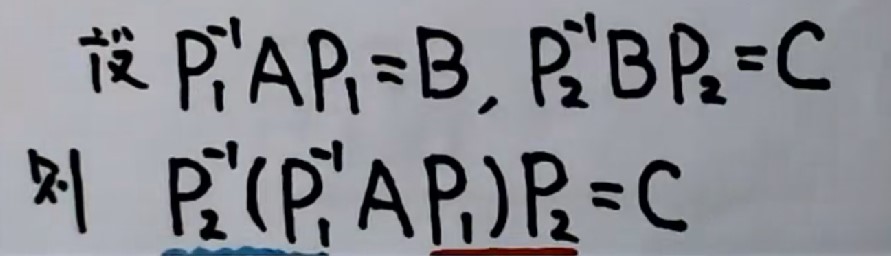 设 P₁⁻¹AP₁=B, P₂⁻¹BP₂=C
则 P₂⁻¹(P₁⁻¹AP₁)P₂=C